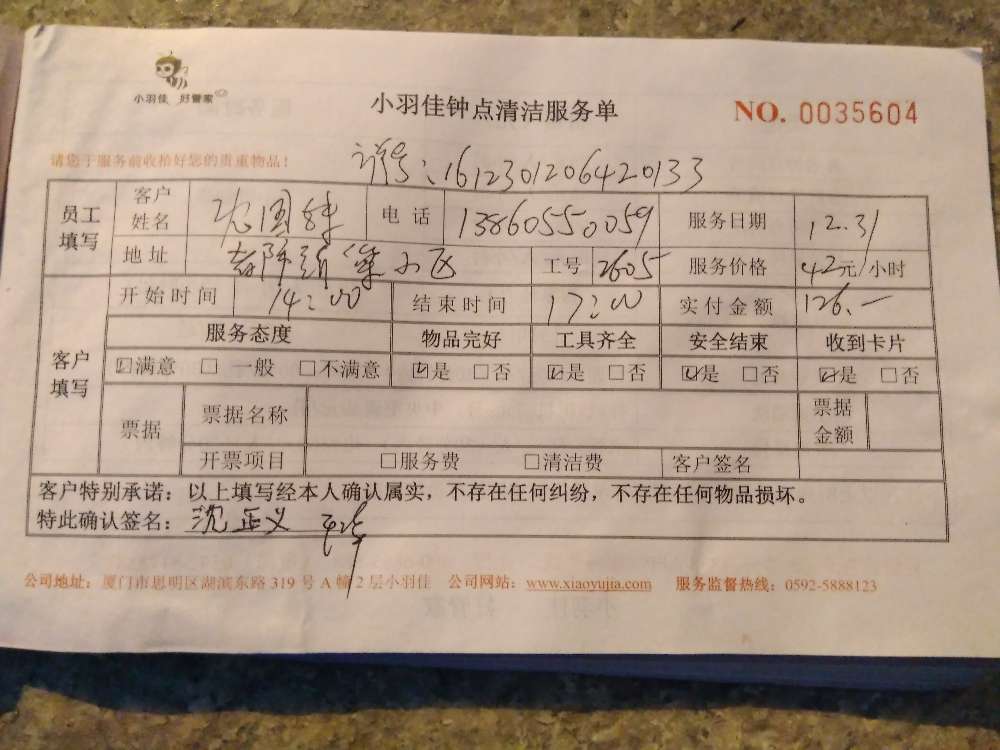 小羽佳 好管家
小羽佳钟点清洁服务单
NO. 0035604
请您于服务前收拾好您的贵重物品！
单号：1612301206420133
员工填写 客户姓名 电话 13860550059 服务日期 12.31
地址 小区 工号 2605 服务价格 42元/小时
客户填写 开始时间 14:00 结束时间 17:00 实付金额 126.—
服务态度 物品完好 工具齐全 安全结束 收到卡片
☑满意 □ 一般 □不满意 ☑是 □否 ☑是 □否 ☑是 □否 ☑是 □否
票据 票据名称 票据金额
开票项目 □服务费 □清洁费 客户签名
客户特别承诺：以上填写经本人确认属实，不存在任何纠纷，不存在任何物品损坏。
特此确认签名：沈正义
公司地址：厦门市思明区湖滨东路 319 号 A 幢 2 层小羽佳 公司网站：www.xiaoyujia.com 服务监督热线：0592-5888123